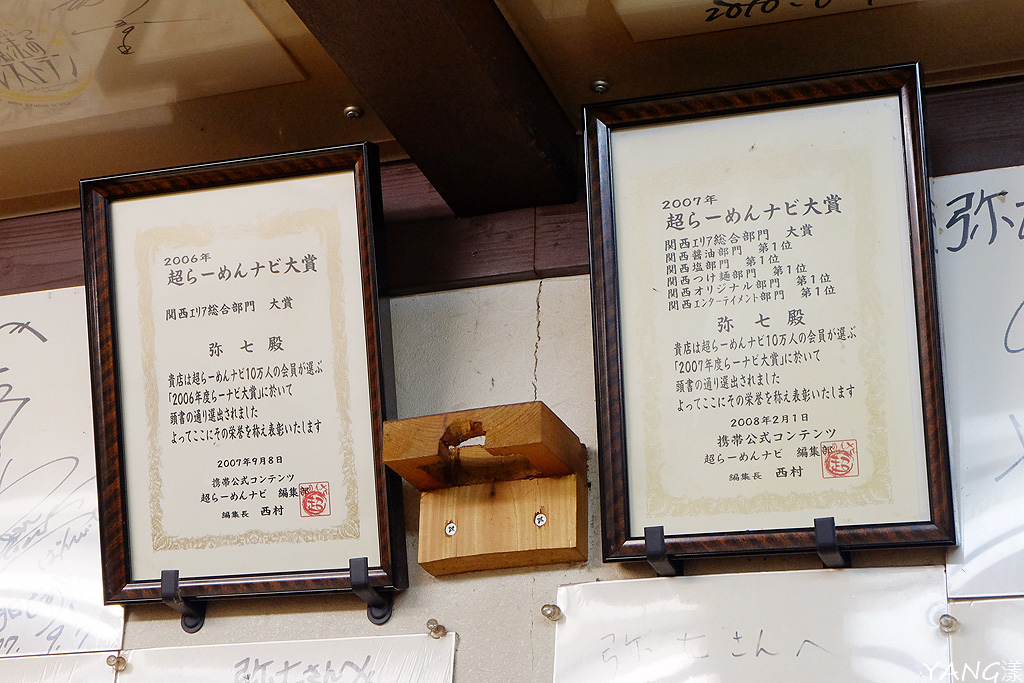 2006年
超らーめんナビ大賞
関西エリア総合部門 大賞
弥七殿
貴店は超らーめんナビ10万人の会員が選ぶ
「2006年度らーナビ大賞」に於いて
頭書の通り選出されました
よってここにその栄誉を称え表彰いたします
2007年9月8日
携帯公式コンテンツ
超らーめんナビ 編集部
編集長 西村
2007年
超らーめんナビ大賞
関西エリア総合部門 大賞
関西醤油部門 第1位
関西塩部門 第1位
関西つけ麺部門 第1位
関西オリジナル部門 第1位
関西エンターテイメント部門 第1位
弥七殿
貴店は超らーめんナビ10万人の会員が選ぶ
「2007年度らーナビ大賞」に於いて
頭書の通り選出されました
よってここにその栄誉を称え表彰いたします
2008年2月1日
携帯公式コンテンツ
超らーめんナビ 編集部
編集長 西村
弥七さんへ
弥七さんへ
YANG漾